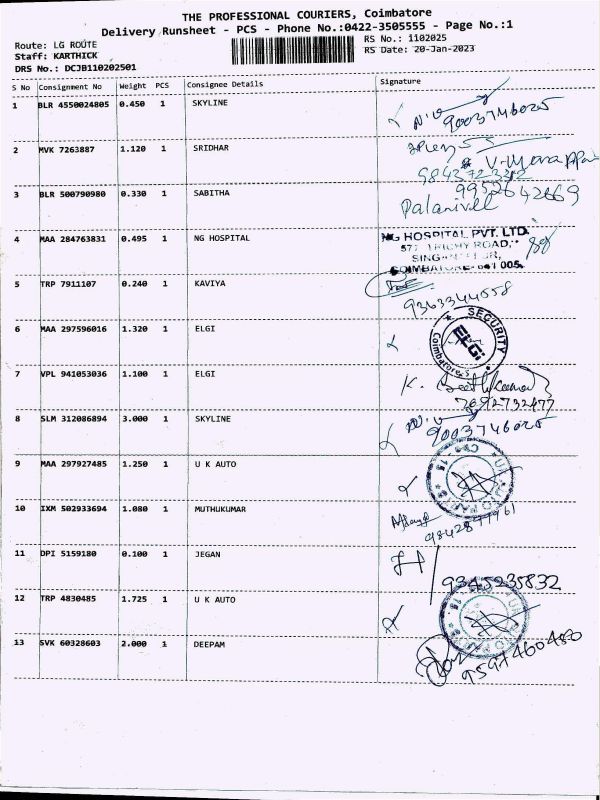 THE PROFESSIONAL COURIERS, Coimbatore
Delivery Runsheet - PCS - Phone No.:0422-3505555 - Page No.:1
Route: LG ROUTE
RS No.: 1102025
Staff: KARTHICK
RS Date: 20-Jan-2023
DRS No.: DCJB110202501
S No Consignment No Weight PCS Consignee Details Signature
1 BLR 4550024805 0.450 1 SKYLINE
9003746025
2 MVK 7263887 1.120 1 SRIDHAR
3 BLR 500790980 0.330 1 SABITHA
9952642669
Palanivel
4 MAA 284763831 0.495 1 NG HOSPITAL
NG HOSPITAL PVT. LTD.
577 TRICHY ROAD,
COIMBATORE-641 005.
5 TRP 7911107 0.240 1 KAVIYA
9363344558
6 MAA 297596016 1.320 1 ELGI
SECURITY
ELGi
Coimbatore
7 VPL 941053036 1.100 1 ELGI
8 SLM 312086894 3.000 1 SKYLINE
9003746025
9 MAA 297927485 1.250 1 U K AUTO
10 IXM 502933694 1.080 1 MUTHUKUMAR
11 DPI 5159180 0.100 1 JEGAN
9345235832
12 TRP 4830485 1.725 1 U K AUTO
13 SVK 60328603 2.000 1 DEEPAM